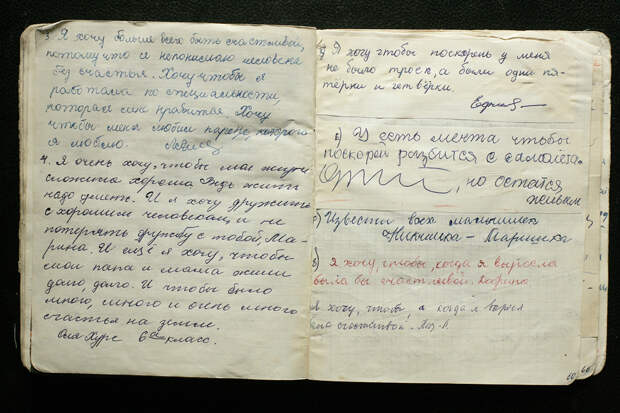 3. Я хочу больше всех быть счастливой,
потому что я непонимаю человека
без счастья. Хочу чтобы я
работала по специальности,
которая мне нравится. Хочу
чтобы меня любил парень, которого
я люблю.
4. Я очень хочу, чтобы моя жизнь
сложила хорошо. Ведь жить
надо умеючи. И я хочу дружить
с хорошим человеком, и не
потерять дружбу с тобой, Ма-
рина. И ещё я хочу, чтобы
мои папа и мама жили
долго, долго. И чтобы было
много, много и очень много
счастья на земле.
Оля Хурс 6 класс.
Я хочу чтобы поскорей у меня
не было троек, а были одни пя-
тёрки и четвёрки.
У есть мечта чтобы
поскорей разбится с самолёта.
, но остатся
живым
Извести всех мальчишек
Никишка - Маришка
8) Я хочу, чтобы, когда я выросла
была бы счастливой.
Я хочу, чтобы, я когда я
60